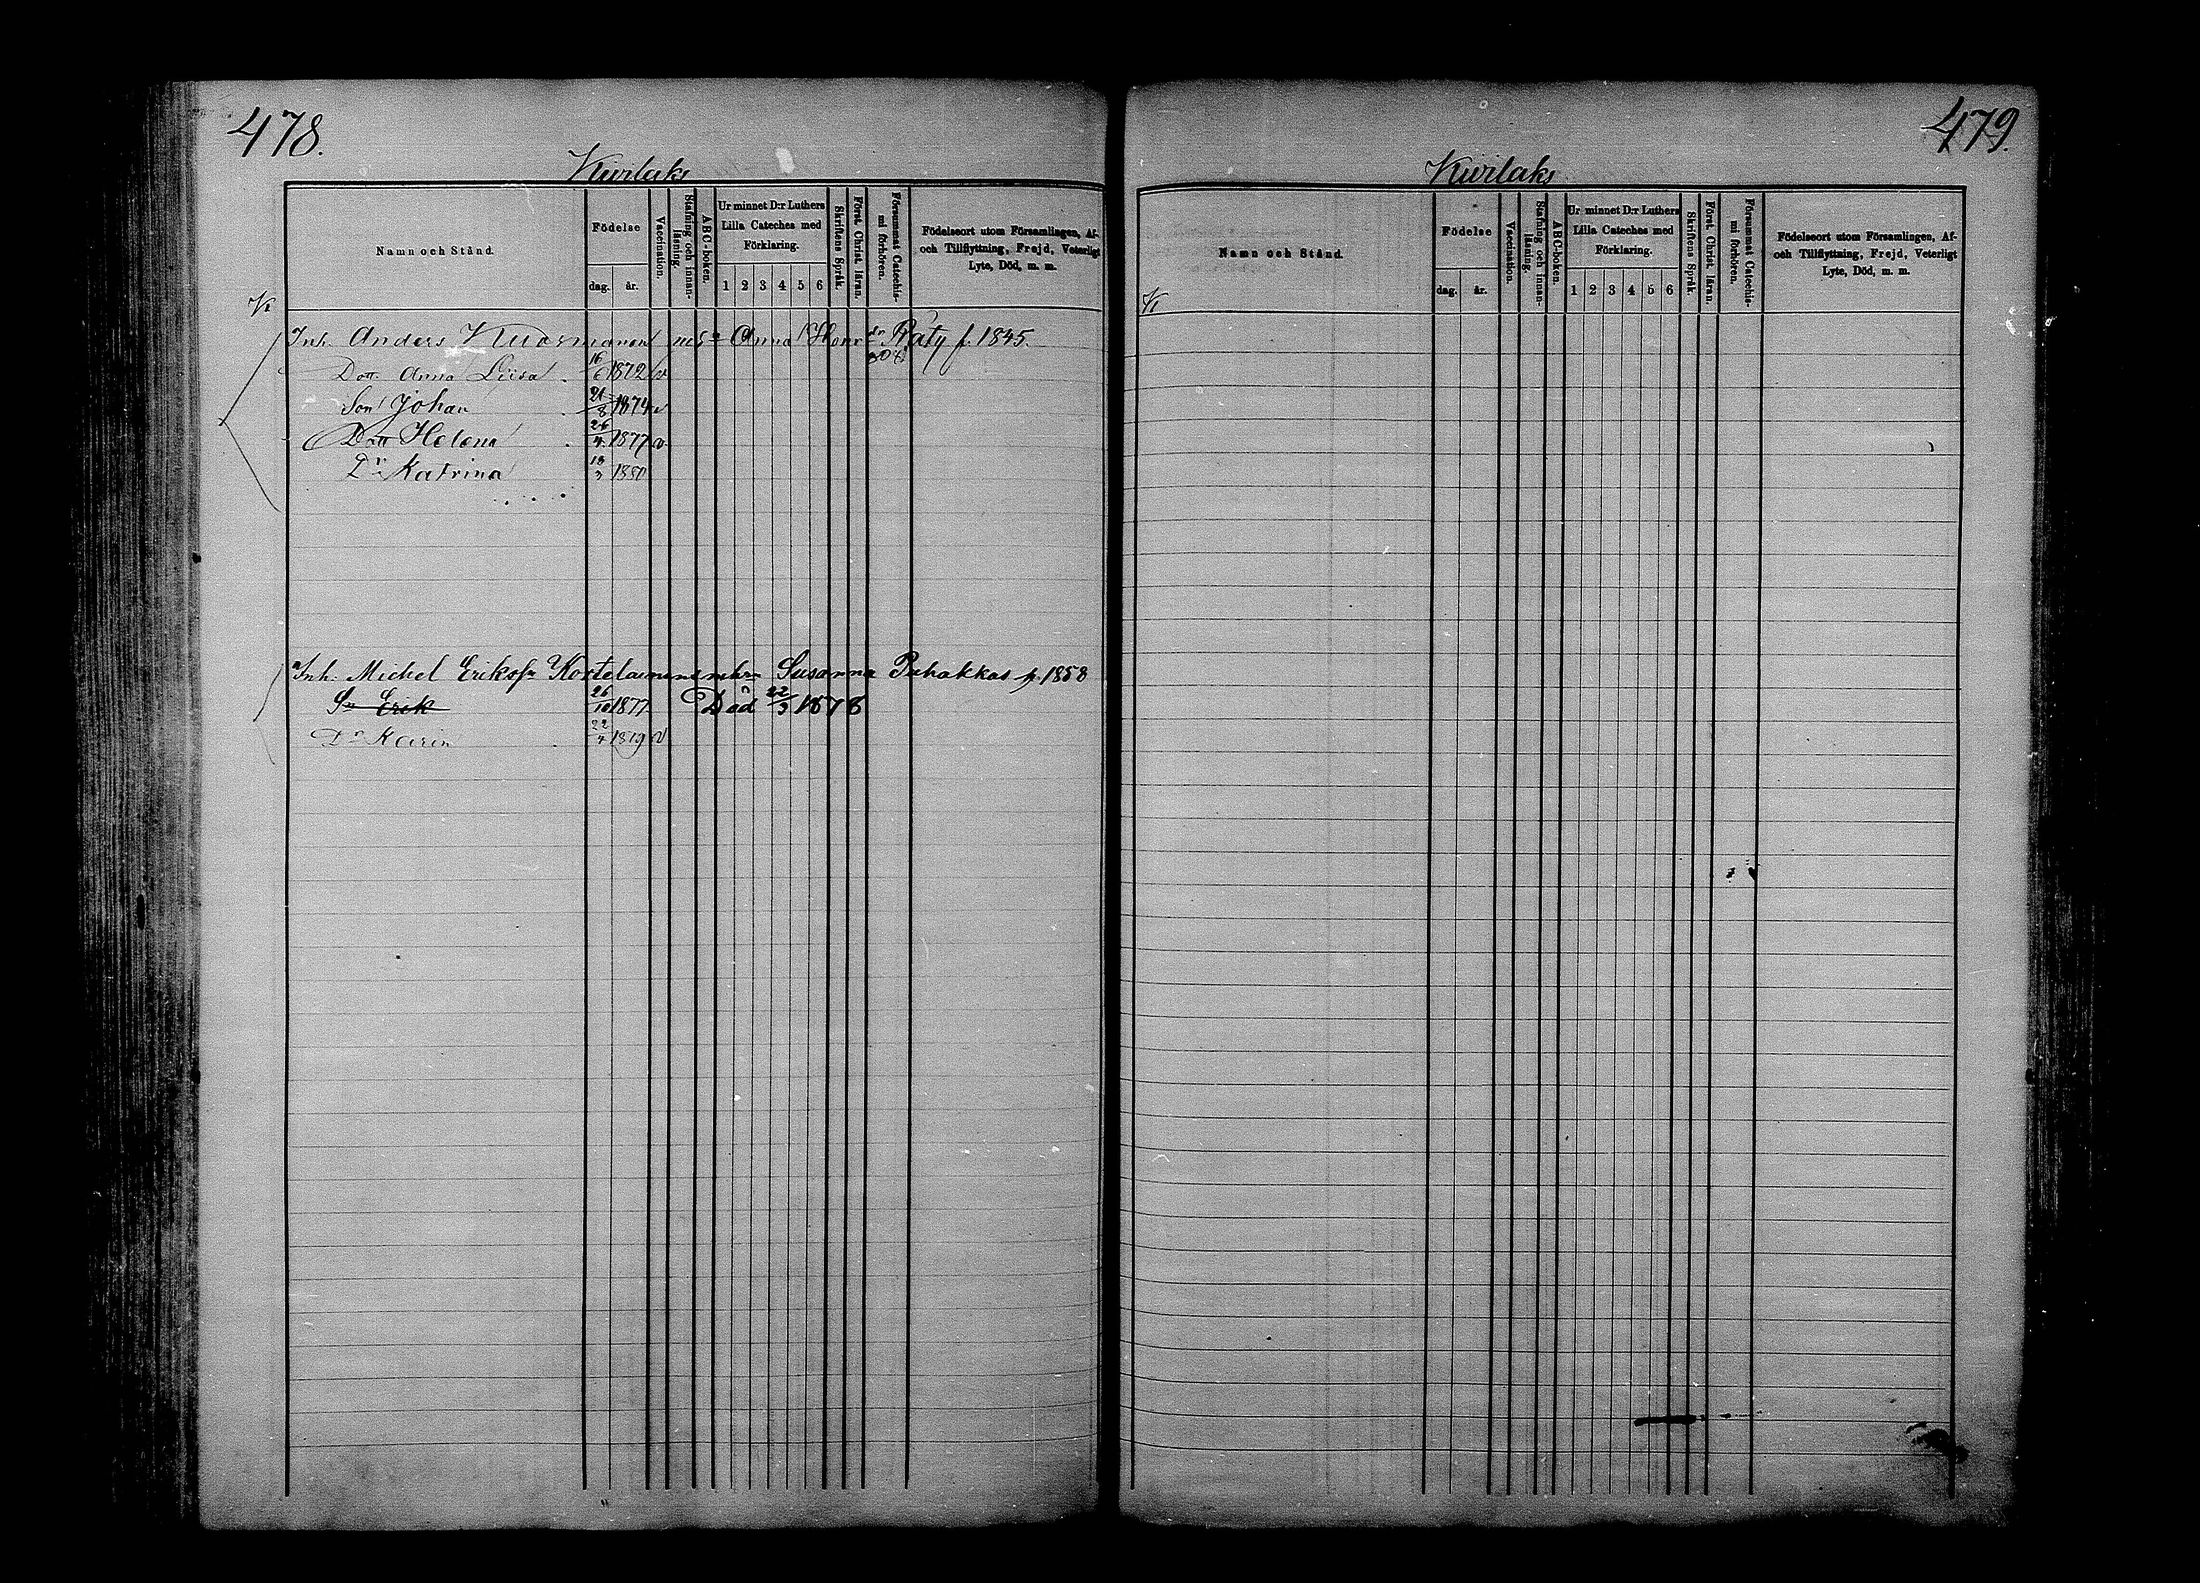 478.
Kivilaks
Namn och Stånd.
Födelse
dag.
år.
Vaccination.
Stafning och innanläsning.
ABC-boken.
Ur minnet D:r Luthers
Lilla Cateches med
Förklaring.
1 2 3 4 5 6
Skriftens Språk.
Först. Christ. läran.
Försummat Catechis-
mi förhören.
Födelseort utom Församlingen, Af-
och Tillflyttning, Frejd, Veterligt
Lyte, Död, m. m.
Inh. Anders Kuosmanen Anna Räty f. 1845
Dott. Anna Liisa 16/6 1872 v
Son Johan 21/8 1874 v
Dott Helena 26/4 1877 v
Dr Katrina 18/3 1880
Inh. Michel Erikss. Kortelainen Susanna Puhakkas f. 1858
Sn Erik 26/10 1877 Död 22/3 1878
Dr Karin 22/4 1879 v
479.
Kivilaks
Namn och Stånd.
Födelse
dag.
år.
Vaccination.
Stafning och innanläsning.
ABC-boken.
Ur minnet D:r Luthers
Lilla Cateches med
Förklaring.
1 2 3 4 5 6
Skriftens Språk.
Först. Christ. läran.
Försummat Catechis-
mi förhören.
Födelseort utom Församlingen, Af-
och Tillflyttning, Frejd, Veterligt
Lyte, Död, m. m.